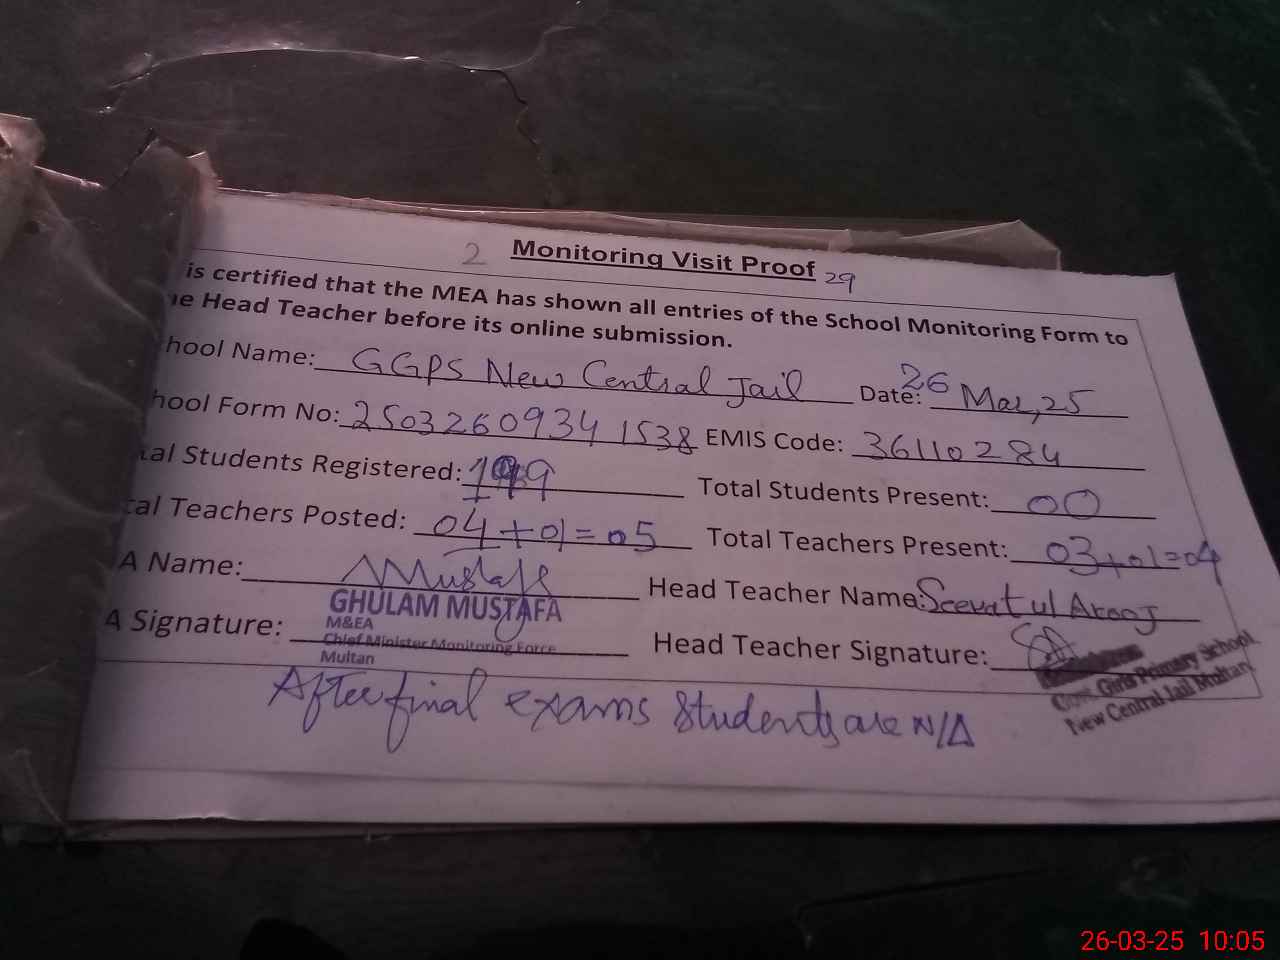 2 Monitoring Visit Proof 29
is certified that the MEA has shown all entries of the School Monitoring Form to
he Head Teacher before its online submission.
hool Name: GGPS New Central Jail Date: 26 Mar, 25
hool Form No: 2503260934 1538 EMIS Code: 36110284
tal Students Registered: Total Students Present: 00
tal Teachers Posted: 04+01=05 Total Teachers Present: 03+01=04
A Name: Mustafa Head Teacher Name: Seerat ul Arooj
GHULAM MUSTAFA
M&EA
A Signature: Head Teacher Signature:
Chief Minister Monitoring Force
Multan
Govt. Girls Primary School
New Central Jail Multan
After final exams students are N/A
26-03-25 10:05